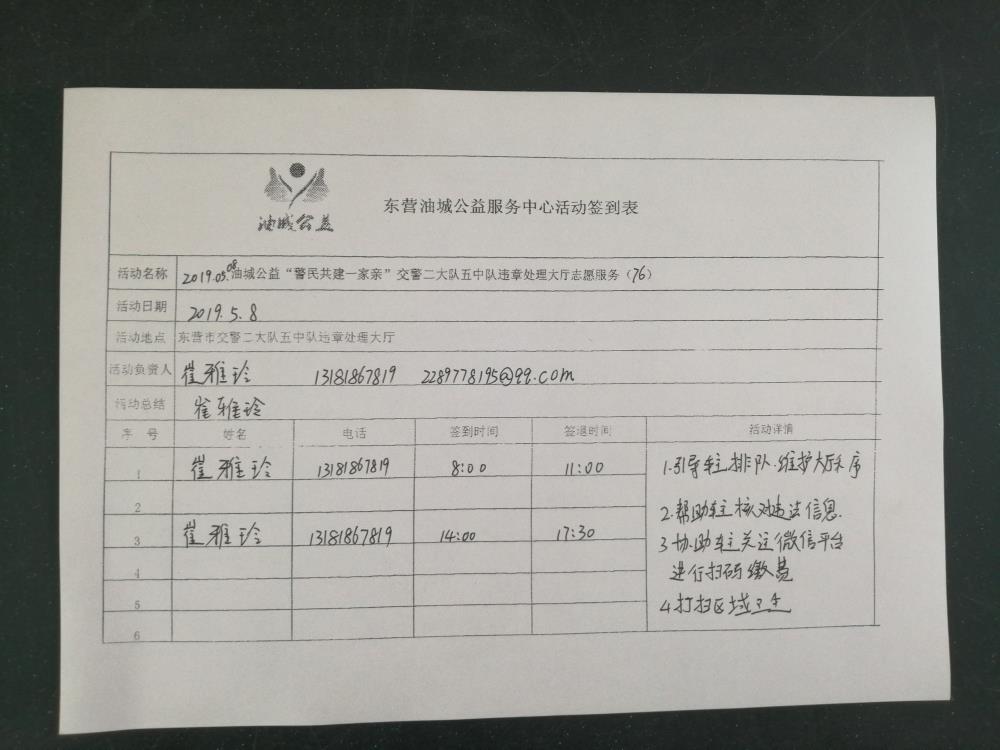 油城公益
东营油城公益服务中心活动签到表
活动名称 2019.05.08油城公益“警民共建一家亲”交警二大队五中队违章处理大厅志愿服务（76）
活动日期 2019.5.8
活动地点 东营市交警二大队五中队违章处理大厅
活动负责人 崔雅玲 13181867819 2289778195@qq.com
活动总结 崔雅玲
序号 姓名 电话 签到时间 签退时间 活动详情
1 崔雅玲 13181867819 8:00 11:00 1.引导车主排队.维护大厅秩序
2
2.帮助车主核对违法信息.
3 崔雅玲 13181867819 14:00 17:30 3协助车主关注微信平台
4 进行扫码缴费
5 4打扫区域卫生
6